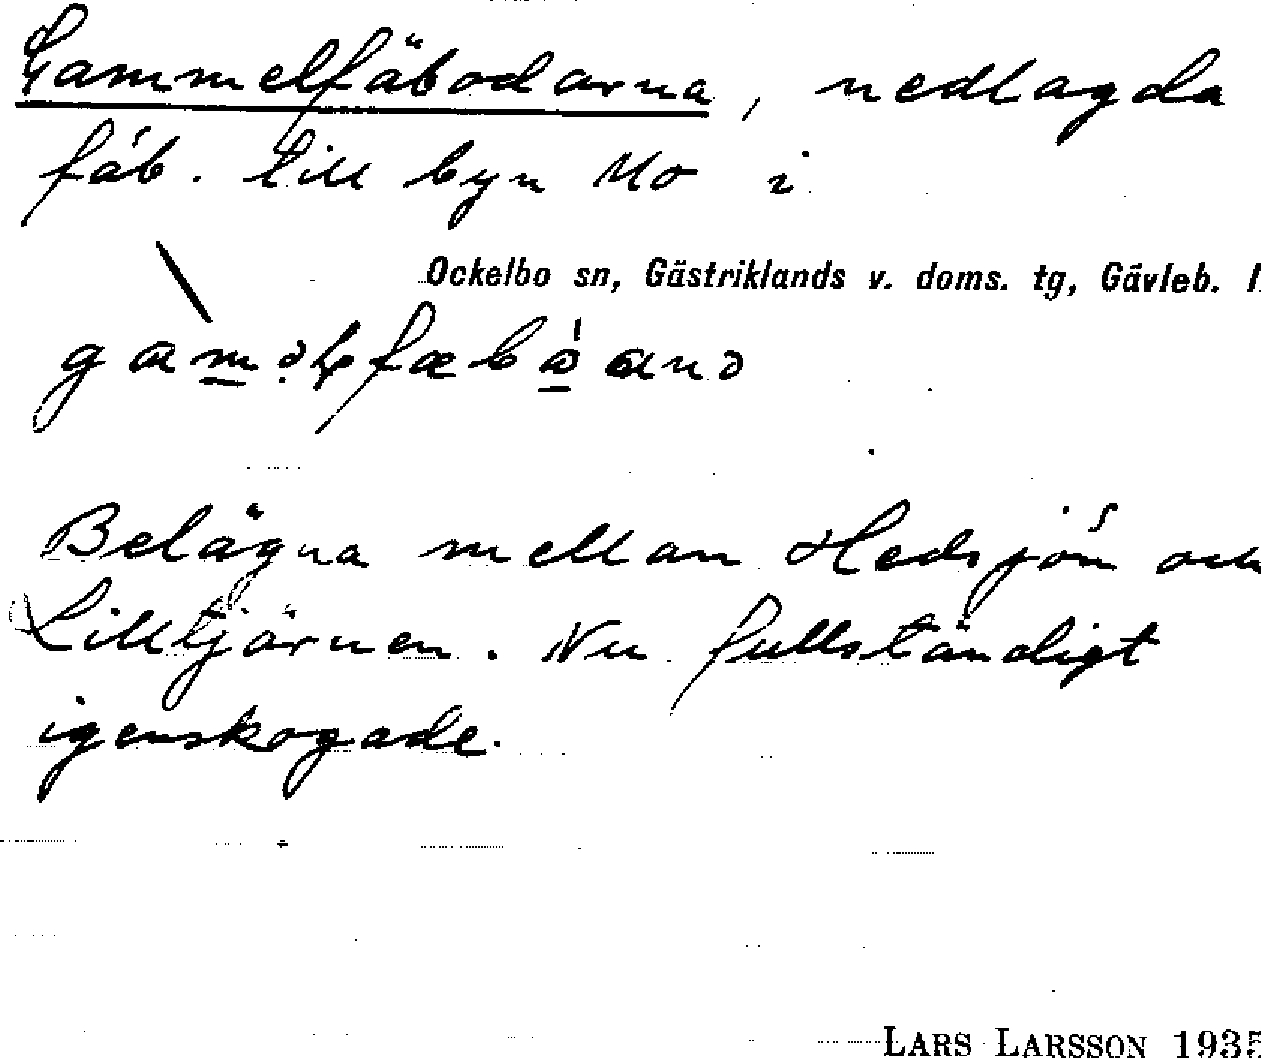 Gammelfäbodarna, nedlagda
fäb. till byn Mo i
Ockelbo sn, Gästriklands v. doms. tg, Gävleb. l
Belägna mellan Hedsjön och
Lilltjärnen. Nu fullständigt
igenskogade.
LARS LARSSON 1935